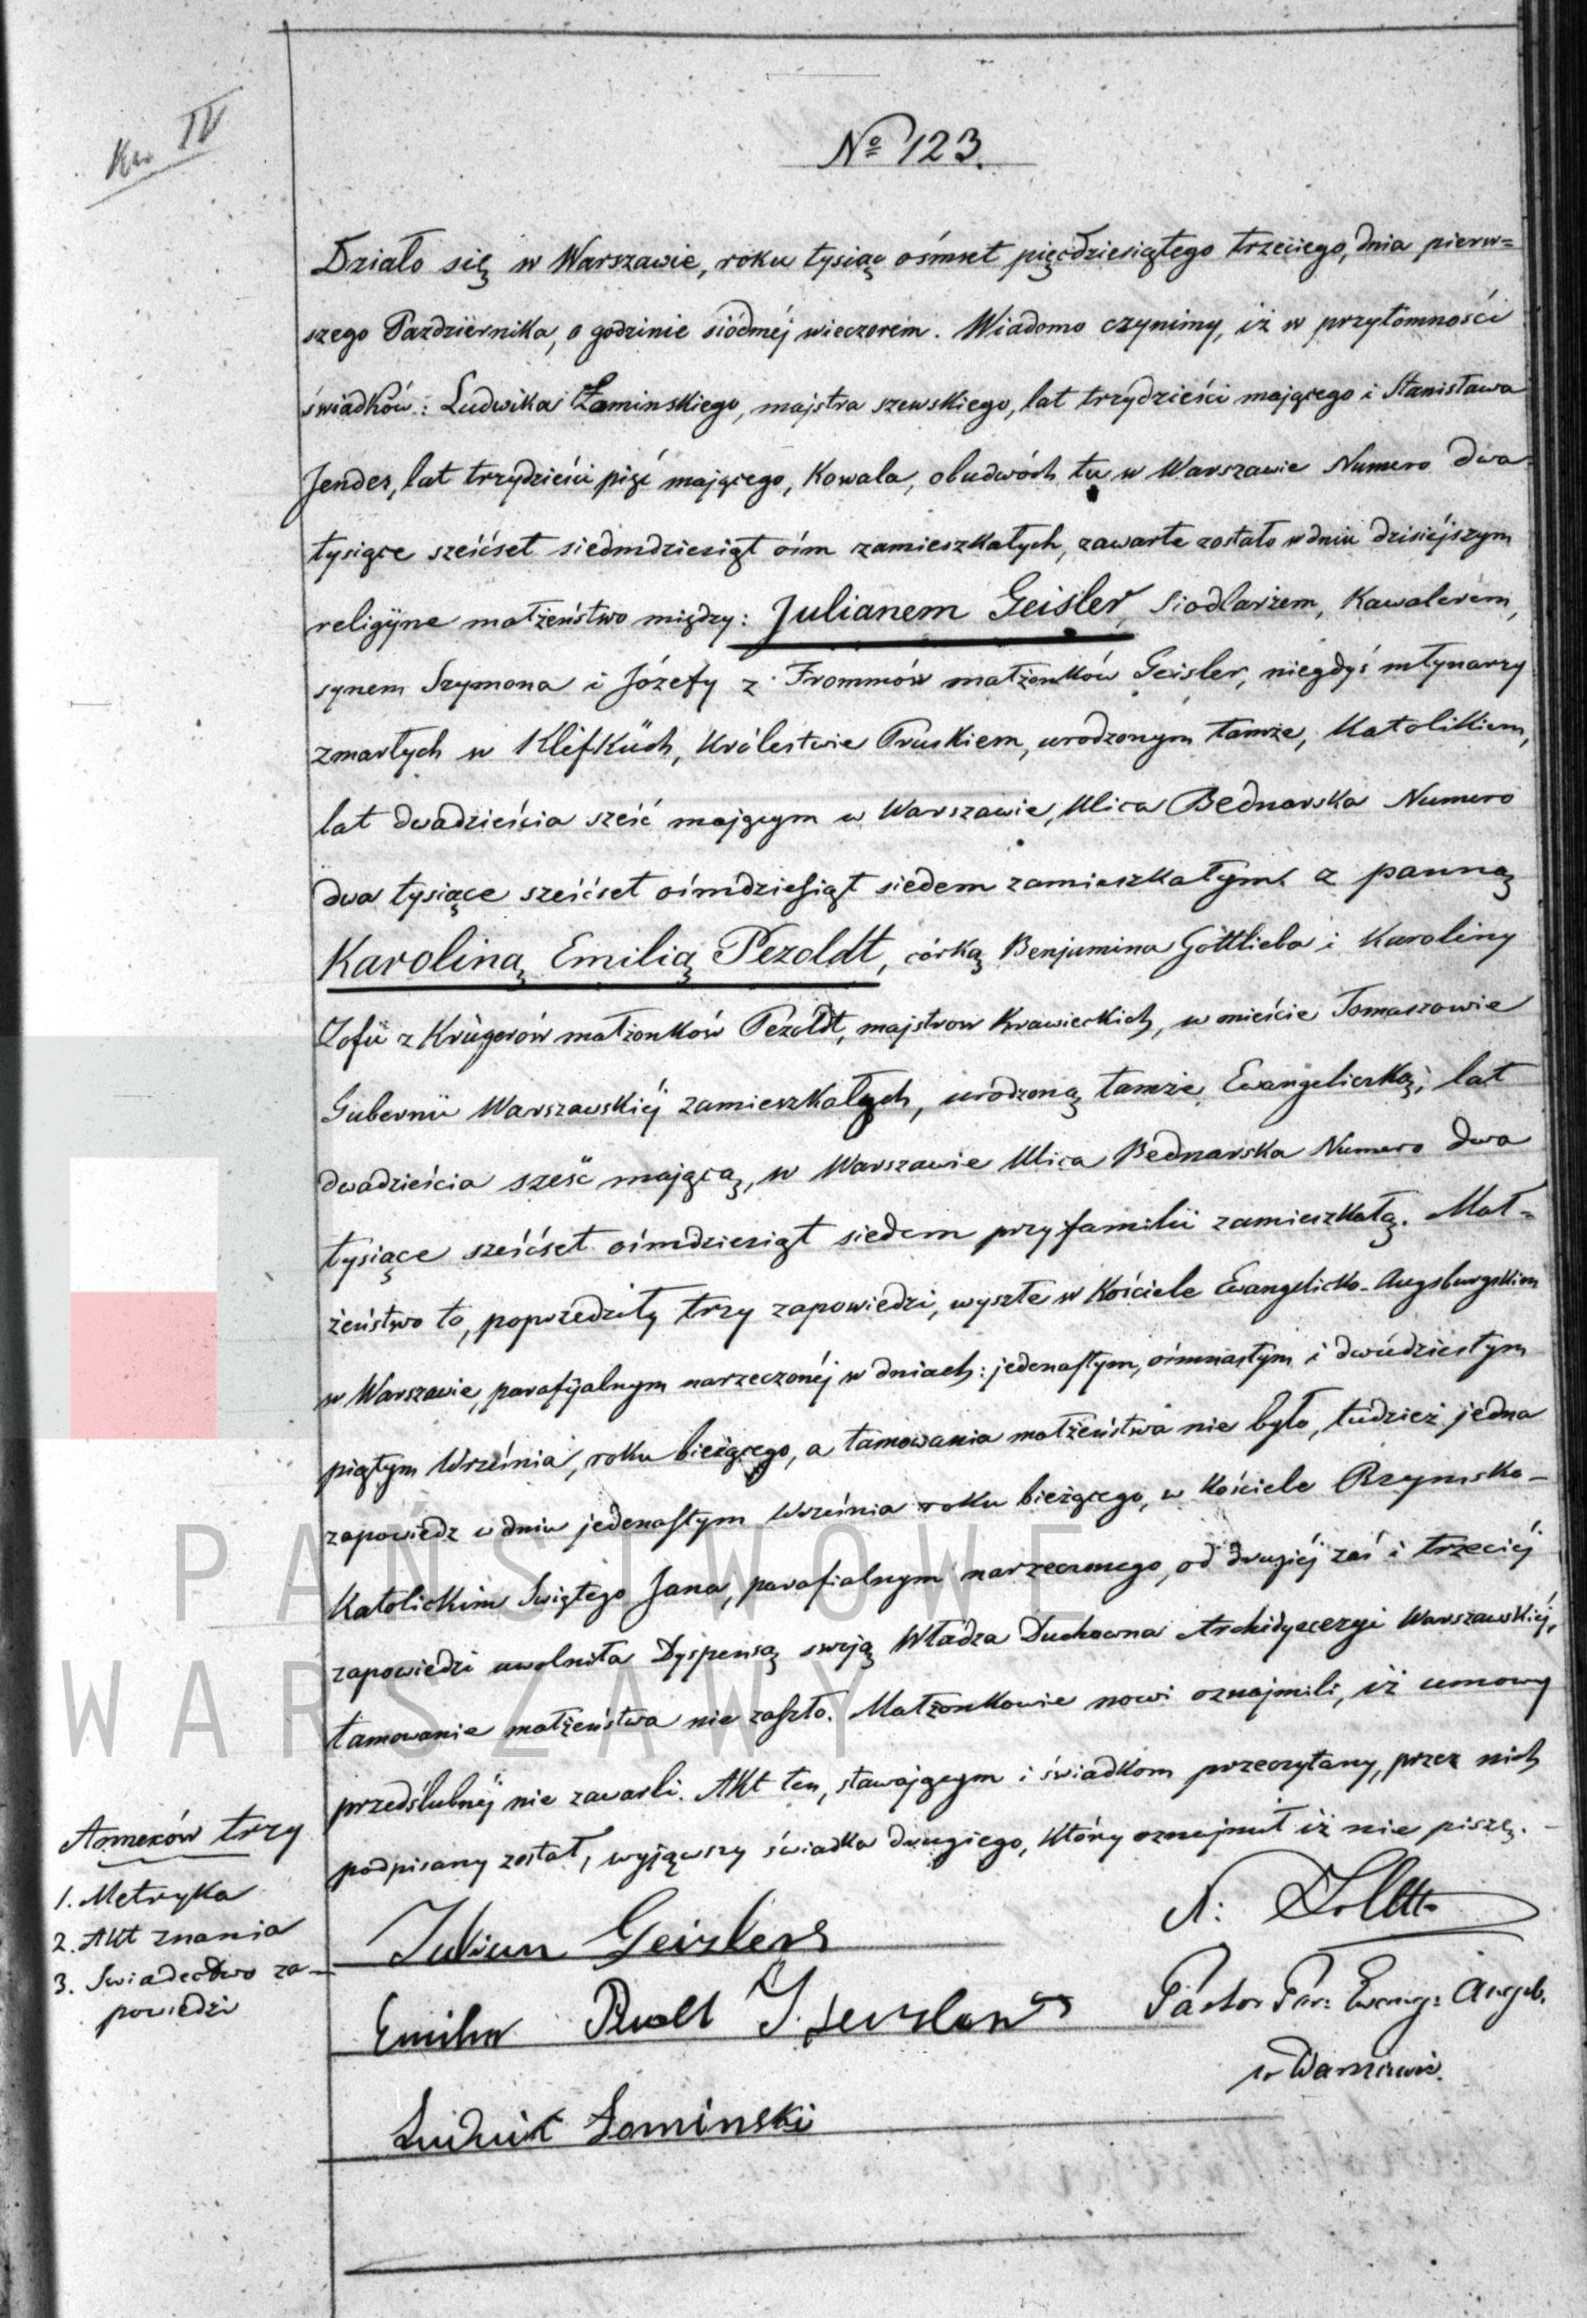 Kw IV
No 123.
Działo się w Warszawie, roku tysiąc ośmset pięćdziesiątego trzeciego, dnia pierw=
szego Października, o godzinie siódméj wieczorem. Wiadomo czynimy, iż w przytomności
świadków: Ludwika Łominskiego, majstra szewskiego, lat trzydzieści mającego i Stanisława
Jendes, lat trzydzieści pięć mającego, Kowala, obudwóch tu w Warszawie Numero dwa
tysiące sześćset siedmdziesiąt ośm zamieszkałych, zawarte zostało w dniu dzisiéjszym
religijne małżeństwo między: Julianem Geisler, Siodlarzem, Kawalerem,
synem Szymona i Józefy z Frommów małżonków Geisler, niegdyś młynarzy
zmarłych w Klefküch, Królestwie Pruskiem, urodzonym tamże, Katolikiem,
lat dwadzieścia sześć mającym w Warszawie, Ulica Bednarska Numero
dwa tysiące sześćset ośmdziesiąt siedem zamieszkałym. a panną
Karoliną Emilią Pezoldt, córką Benjamina Gottlieba i Karoliny
Zofii z Krügerów małżonków Pezoldt, majstrow Krawieckich, w mieście Tomaszowie
Gubernii Warszawskiéj zamieszkałych, urodzoną tamże, Ewangeliczką, lat
dwadzieścia sześć mającą, w Warszawie Ulica Bednarska Numero dwa
tysiące sześćset ośmdziesiąt siedem przy familii zamieszkałą. Mał=
żeństwo to, poprzedziły trzy zapowiedzi, wyszłe w Kościele Ewangelicko-Augsburgskim
w Warszawie, parafijalnym narzeczonéj w dniach: jedenastym, ośmnastym i dwudziestym
piątym Września, roku bieżącego, a tamowania małżeństwa nie było, tudzież jedna
zapowiedz w dniu jedenastym Września roku bieżącego, w Kościele Rzymsko-
Katolickim Świętego Jana, parafialnym narzeczonego, od drugiéj zaś i trzeciéj
zapowiedzi uwolniła Dyspensą swoją Władza Duchowna Archidyecezyi Warszawskiéj,
tamowanie małżeństwa nie zaszło. Małżonkowie nowi oznajmili, iż umowy
przedślubnéj nie zawarli. Akt ten, stawającym i świadkom przeczytany, przez nich
podpisany został, wyjąwszy świadka drugiego, który oznajmił iż nie pisze.
Annexów trzy
1. Metryka
2. Akt znania
3. Swiadectwo za-
powiedzi
Julian Geizler
Emilia
Ludwik Łominski
Pastor Par: Ewang: Augsb.
w Warszawie.
PAŃSTWOWE
WARSZAWY